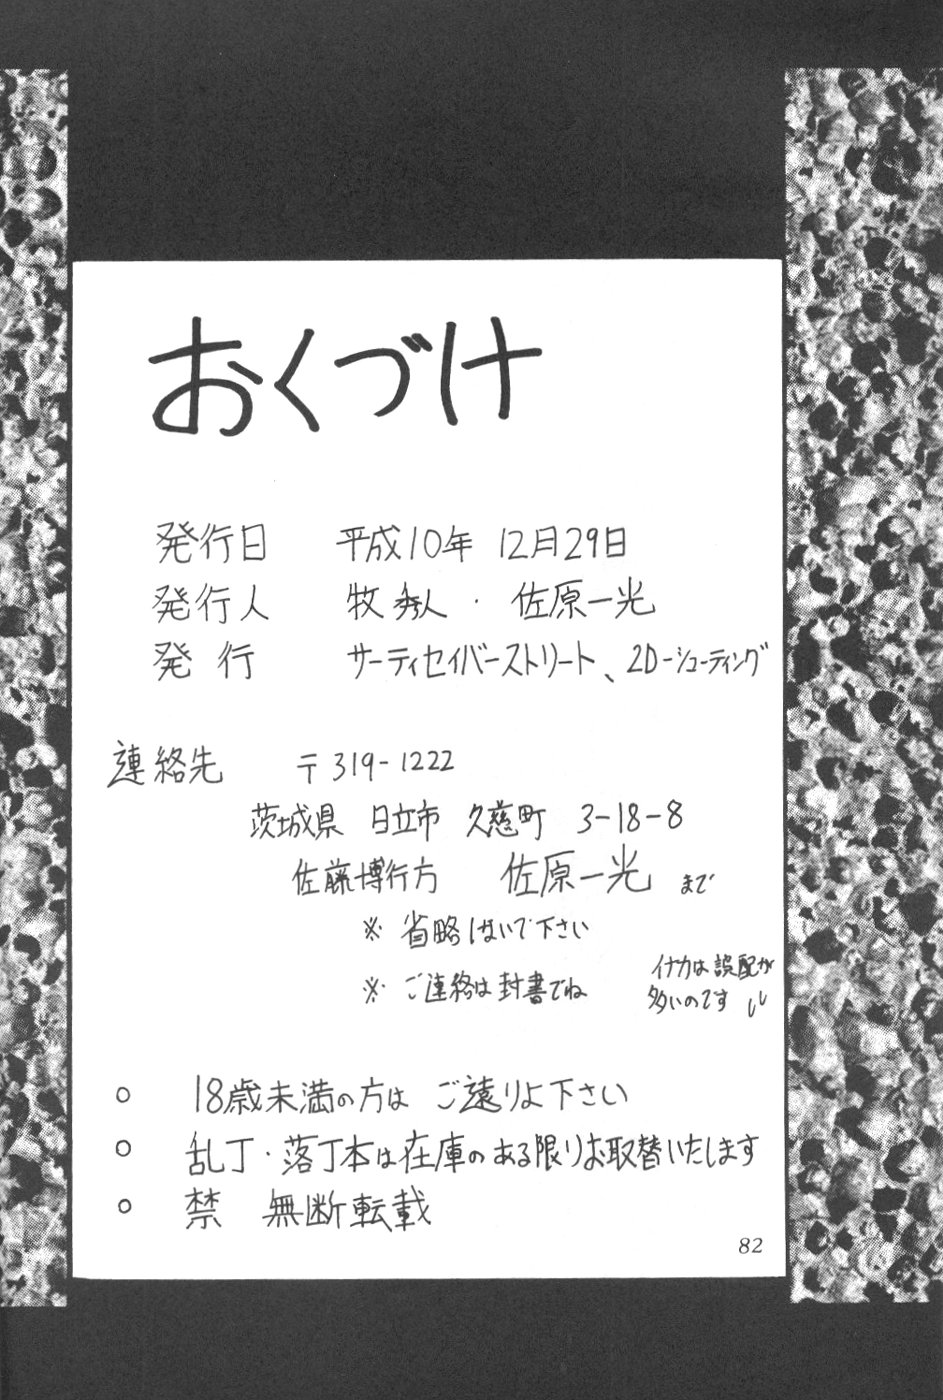 おくづけ
発行日 平成10年 12月29日
発行人 牧 秀人 ・ 佐原一光
発行 サーティセイバーストリート、2D-シューティング
連絡先 〒319-1222
茨城県 日立市 久慈町 3-18-8
佐藤博行方 佐原一光 まで
※ 省略しないで下さい
※ ご連絡は封書でね
イナカは誤配が
多いのです
○ 18歳未満の方は ご遠りよ下さい
○ 乱丁・落丁本は在庫のある限りお取替いたします
○ 禁 無断転載
82